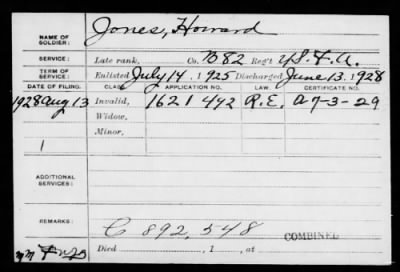 NAME OF SOLDIER: Jones, Howard
SERVICE: Late rank, Co. B 82 Reg't U.S.F.A.
TERM OF SERVICE: Enlisted July 14, 1925 Discharged June 13, 1928
DATE OF FILING. CLASS. APPLICATION NO. LAW. CERTIFICATE NO.
1928 Aug 13 Invalid, 1621442 R.E. A 7-3-29
Widow,
Minor,
1
ADDITIONAL SERVICES:
REMARKS: C 892,548
COMBINED
Died , 1 , at